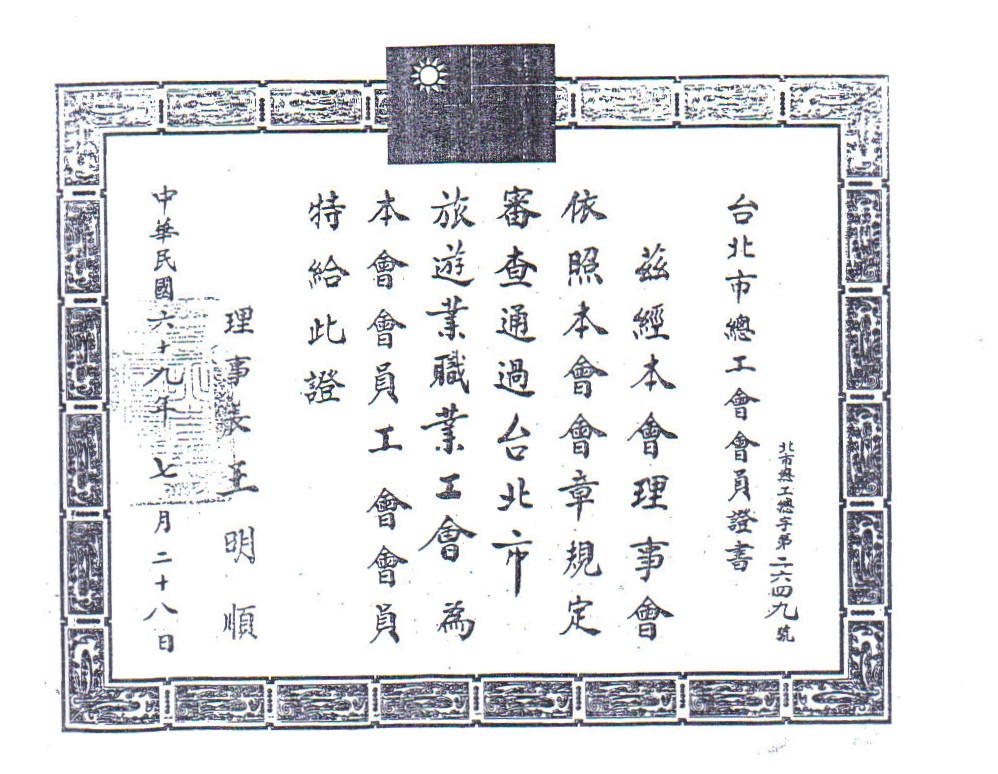 台北市總工會會員證書
北市總工總字第二六四九號
茲經本會理事會
依照本會會章規定
審查通過台北市
旅遊業職業工會為
本會會員工會會員
特給此證
理事長王明順
中華民國六十九年七月二十八日